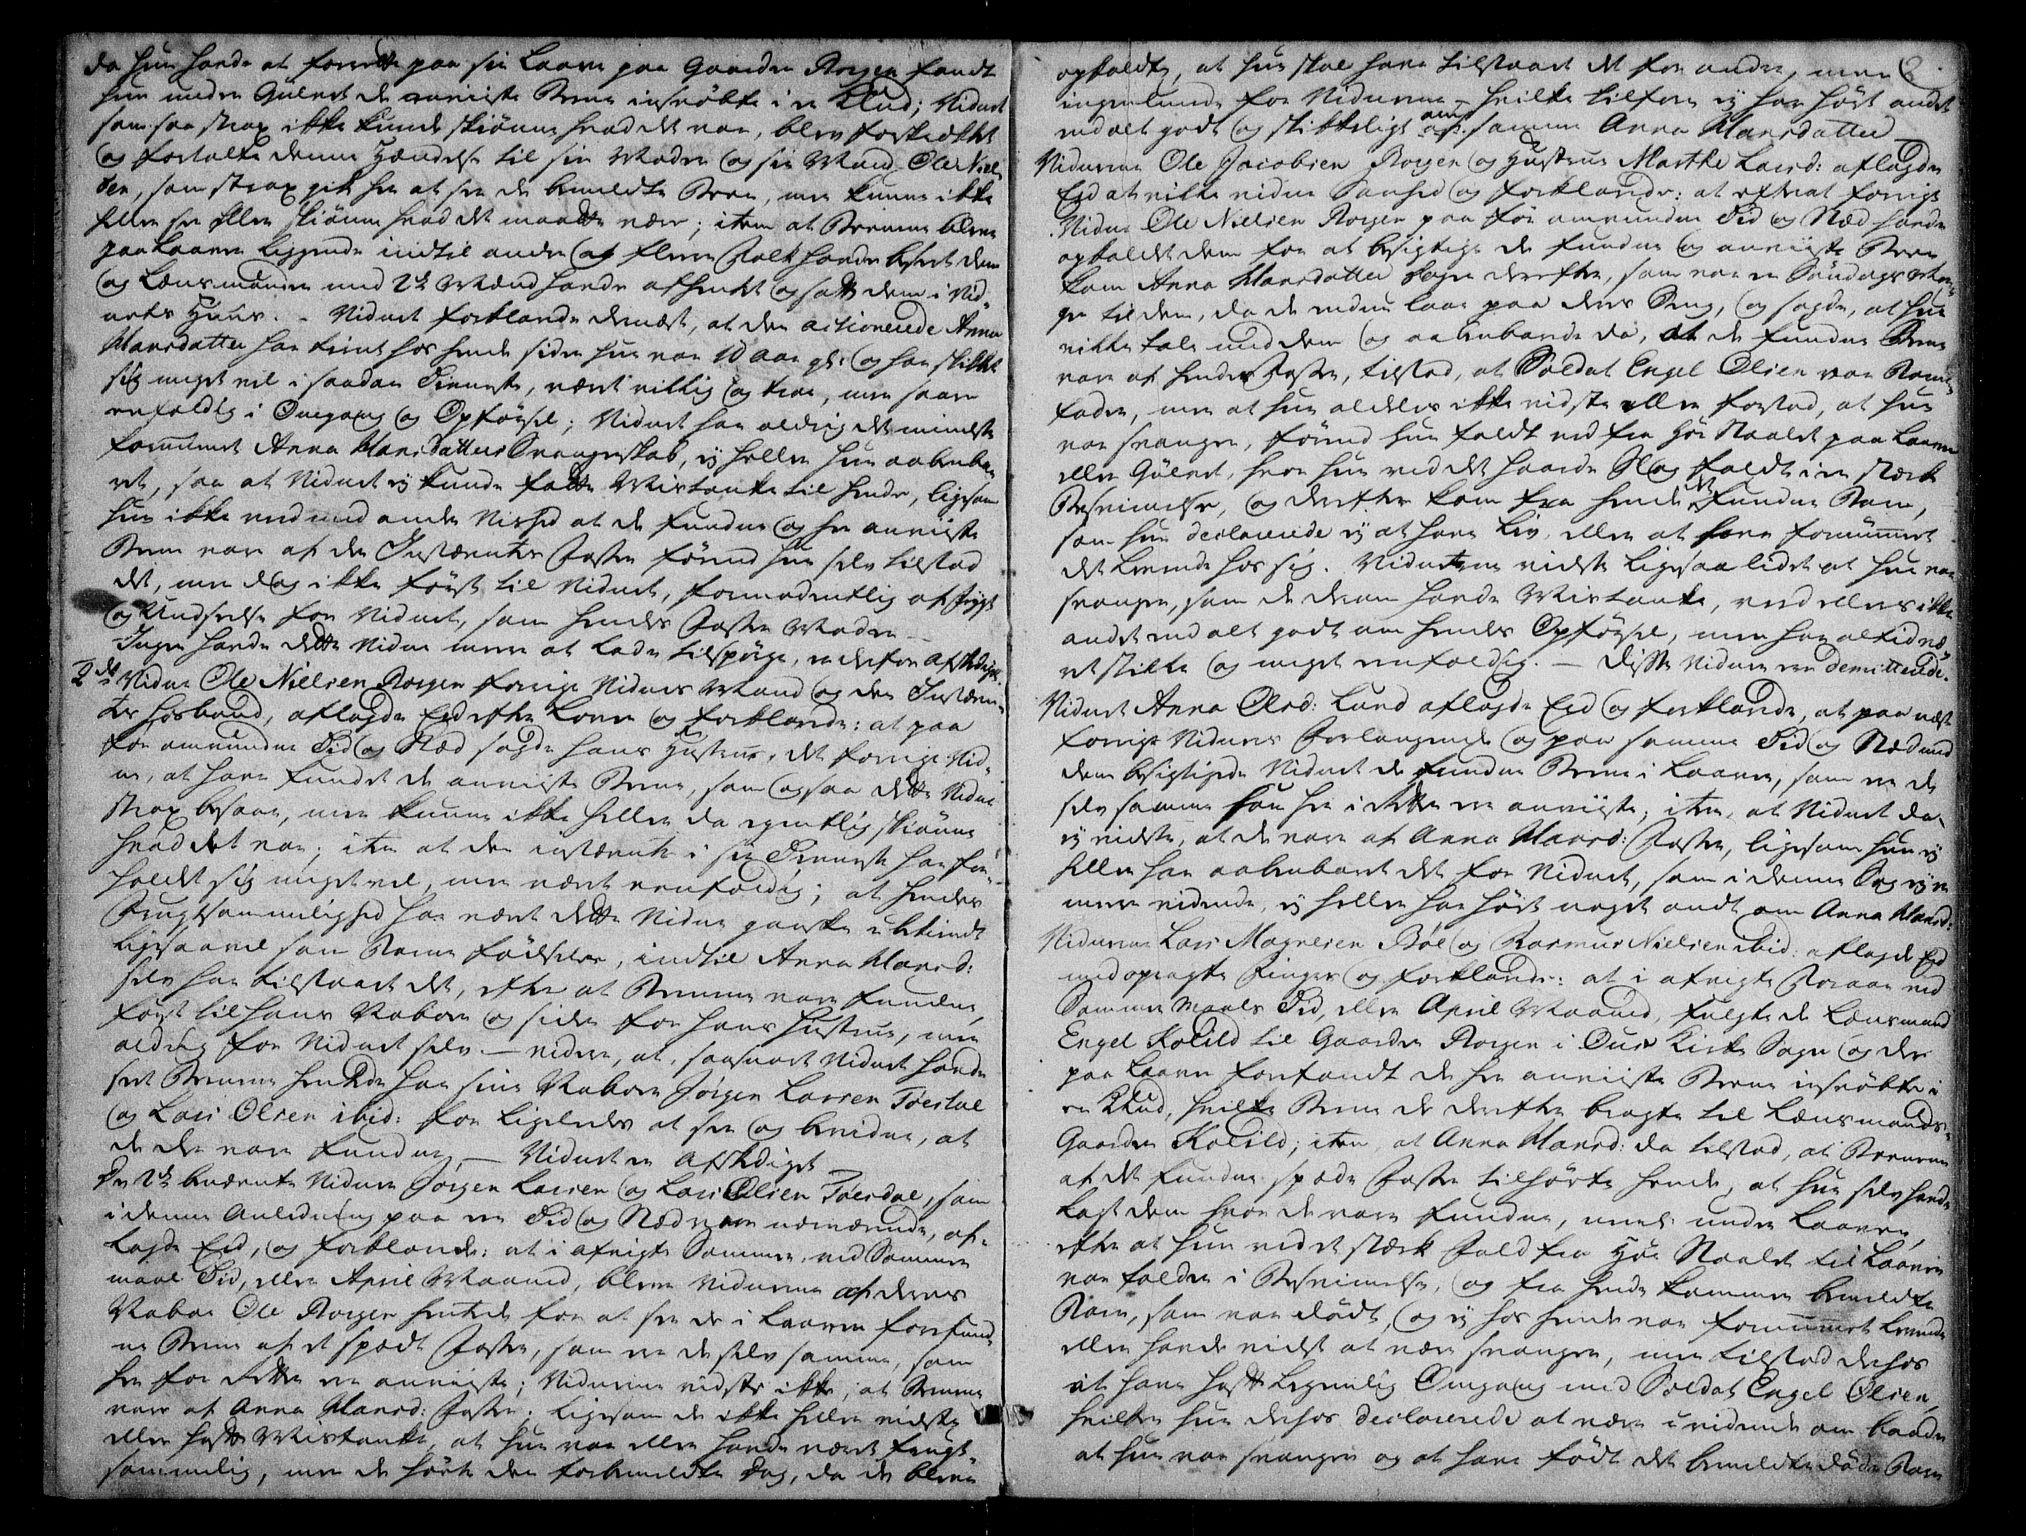 da hun havde at forrette paa sin Laave paa Gaarden Rorgen fandt
hun under Gulvet de anviiste Been insvøbte i en Klud; Vidnet
som saa strax ikke kunde skiønne hvad det var, blev forskrækket
og fortalte denne Hændelse til sin Moder og sin Mand Ole Niel-
sen, som strax gik hen at see de bemeldte Been, men kunne ikke
heller see eller skiønne hvad det maatte være; item at Beenene bleve
paa Laaven liggende indtil andre og flere Folk havde beseet dem
og Lænsmanden med 2de Mænd havde afhentet og satt dem i Vid-
nets Huus. - Vidnet forklarede dernæst, at den actionerede Anna
Hansdatter har tient hos hende siden hun var 10 Aar gl: og har skikket
sig meget vel i saadan Tienneste, været villig og troe, men saare
enfoldig i Omgang og Opførsel; Vidnet har aldrig det mindste
fornummet Anna Hansdatters Svangerskab, ej heller hun aabenba-
ret, saa at Vidnet ej kunde fatte Mistanke til hende, ligesom
hun ikke veed med anden Vished at de fundne og her anviiste
Been vare af den Indstævntes Foster førend hun selv tilstod
det, men dog ikke først til Vidnet, formodentlig af Frygt
og Undseelse for Vidnet, som hendes Foster Moder. -
Ingen havde dette Vidne mere at lade tilspørge, er derfor afskediget.
2det Vidne Ole Nielsen Rorgen forrige Vidnes Mand og den Indstævn-
tes Hosbond, aflagde Eed efter Loven og forklarede: at paa
før ommundne Tid og Stæd sagde hans Hustrue, det forrige Vid-
ne, at have fundet de anviiste Been, som ogsaa dette Vidne
strax besaae, men kunne ikke heller da egentlig skiønne
hvad det var; item at den indstævnte i sin Tienneste har for-
holdt sig meget vel, men været eenfoldig; at hendes
Frugtsommelighed har været dette Vidne ganske ubekiendt
ligesaavel som Barne Fødselen, indtil Anna Hansd:
selv har tilstaaet det, efter at Beenene vare fundne,
først til hans Naboer og siden for hans Hustrue, men
aldrig for Vidnet selv. - viidere, at, saasnart Vidnet havde
seet Beenene hentede han sine Naboer Jørgen Larsen Toesdal
og Lars Olsen ibid: for ligeledes at see og bevidne, at
de der vare fundne, - Vidnet er afskediget
De 2de benævnte Vidner Jørgen Larsen og Lars Olsen Toesdal, som
i denne Anledning paa een Tid og Stæd vare nærværende, af-
lagde Eed, og forklarede: at i afvigte Sommer, ved Sommer
maal Tid, eller April Maaned, bleve Vidnerne af deres
Naboe Ole Rorgen hentede for at see de i Laaven forfund-
ne Been af et spædt Foster, som er de selv samme, som
her for Retten ere anviiste; Vidnerne vidste ikke, at Beenene
vare af Anna Hansd: Foster, ligesom de ikke heller vidste
eller hafte Mistanke, at hun var eller havde været frugt-
sommelig, men de hørte den forbemeldte Dag, da de bleve
opholdte, at hun skal have tilstaaet det for andre, men
ingenlunde for Vidnerne - hvilke tilforn ej har hørt andet
end alt godt og skikkeligt om samme Anna Hansdatter -
Vidnerne Ole Jacobsen Rorgen og Hustrue Marthe Larsd: aflagde
Eed at ville vidne Sanhed og forklarede: at efterat forrige
Vidne Ole Nielsen Rorgen paa før ommundne Tid og Stæd havde
opholdet dem for at besigtige de fundne og anviiste Been
kom Anna Hansdatter Dagen derefter, som var en Søndags Mor-
gen til dem, da de endnu laae paa deres Seng, og sagde, at hun
ville tale med dem og aabenbarede da, at de fundne Been
vare af hendes Foster, tilstod, at Soldat Engel Olsen var Barne-
fader, men at hun aldeles ikke vidste eller forstod, at hun
var svanger, førend hun faldt ned fra Høe Staalet paa Laaven
eller Gulvet, hvor hun ved det haarde Slag faldt i en stærk
Besvimelse, og derefter kom fra hende det fundne Barn,
som hun declarerede ej at have Liv, eller at have fornummet
det levende hos sig. Vidnerne vidste ligesaa lidet at hun var
svanger, som de derom havde Mistanke, veed ellers ikke
andet end alt godt om hendes Opførsel, men har altid væ-
ret stille og meget eenfoldig. - Disse Vidner ere demitterede.
Vidnet Anna Olsd: Lund aflagde Eed og forklarede, at paa næst
forrige Vidners Forlangende og paa samme Tid og Stæd med
dem besigtigede Vidnet de fundne Been i Laaven, som er de
selv samme som her i Retten ere anviiste, item, at Vidnet da
ej vidste, at de vare af Anna Hansd: Foster, ligesom hun ej
heller har aabenbaret det for Vidnet, som i denne Sag ej er
mere vidende, ej heller har hørt noget ondt om Anna Hansd:
Vidnerne Lars Mognesen Bøe og Rasmus Nielsen ibid: aflagde Eed
med opragte Fingre og forklarede: at i afvigte Foraar ved
Sommer Maals Tid, eller April Maaned, fulgte de Lænsmand
Engel Kolild til Gaarden Rorgen i Ous Kirke Sogn og der
paa Laaven forefandt de her anviiste Been insvøbte i
en Klud, hvilke Been de derefter bragte til Lænsmands
Gaarden Kolild; item, at Anna Hansd: da tilstod, at Beenene
af det fundne spæde Foster tilhørte hende, at hun selv havde
lagt dem hvor de vare fundne, neml: under Laaven,
efter at hun ved et stærk Fald fra Høe Staalet til Laaven
var falden i Besvimelse, og fra hende kommen bemeldte
Barn, som var dødt, og ej hos hende var fornummet levende
eller havde vidst at være svanger, men tilstod derhos
at have haft legemlig Omgang med Soldat Engel Olsen,
hvilken hun derhos declarerede at være uvidende om baade
at hun var svanger og at have født det bemeldte døde Barn